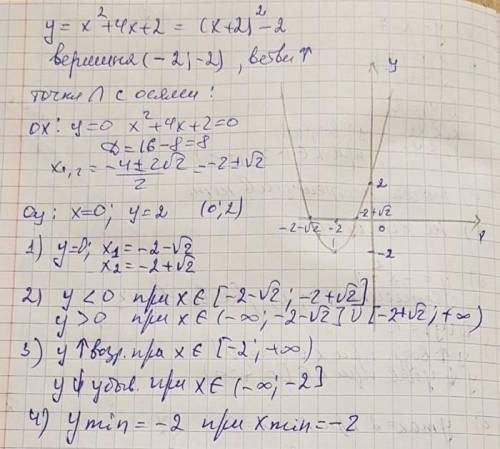 y = x²+4x+2 = (x+2)²-2
вершина (-2;-2), ветви ↑
точки ∩ с осями:
ox: y=0 x²+4x+2=0
D=16-8=8
x₁,₂ = (-4±2√2)/2 = -2±√2
Oy: x=0; y=2 (0;2)
1) y=0; x₁=-2-√2
x₂=-2+√2
2) y<0 при x∈[-2-√2; -2+√2]
y>0 при x∈(-∞; -2-√2]∪[-2+√2; +∞)
3) y↑возр. при x∈[-2; +∞)
y↓убыв. при x∈(-∞; -2]
4) y min = -2 при x min = -2
y
2
-2-√2
-2
-2+√2
0
-2